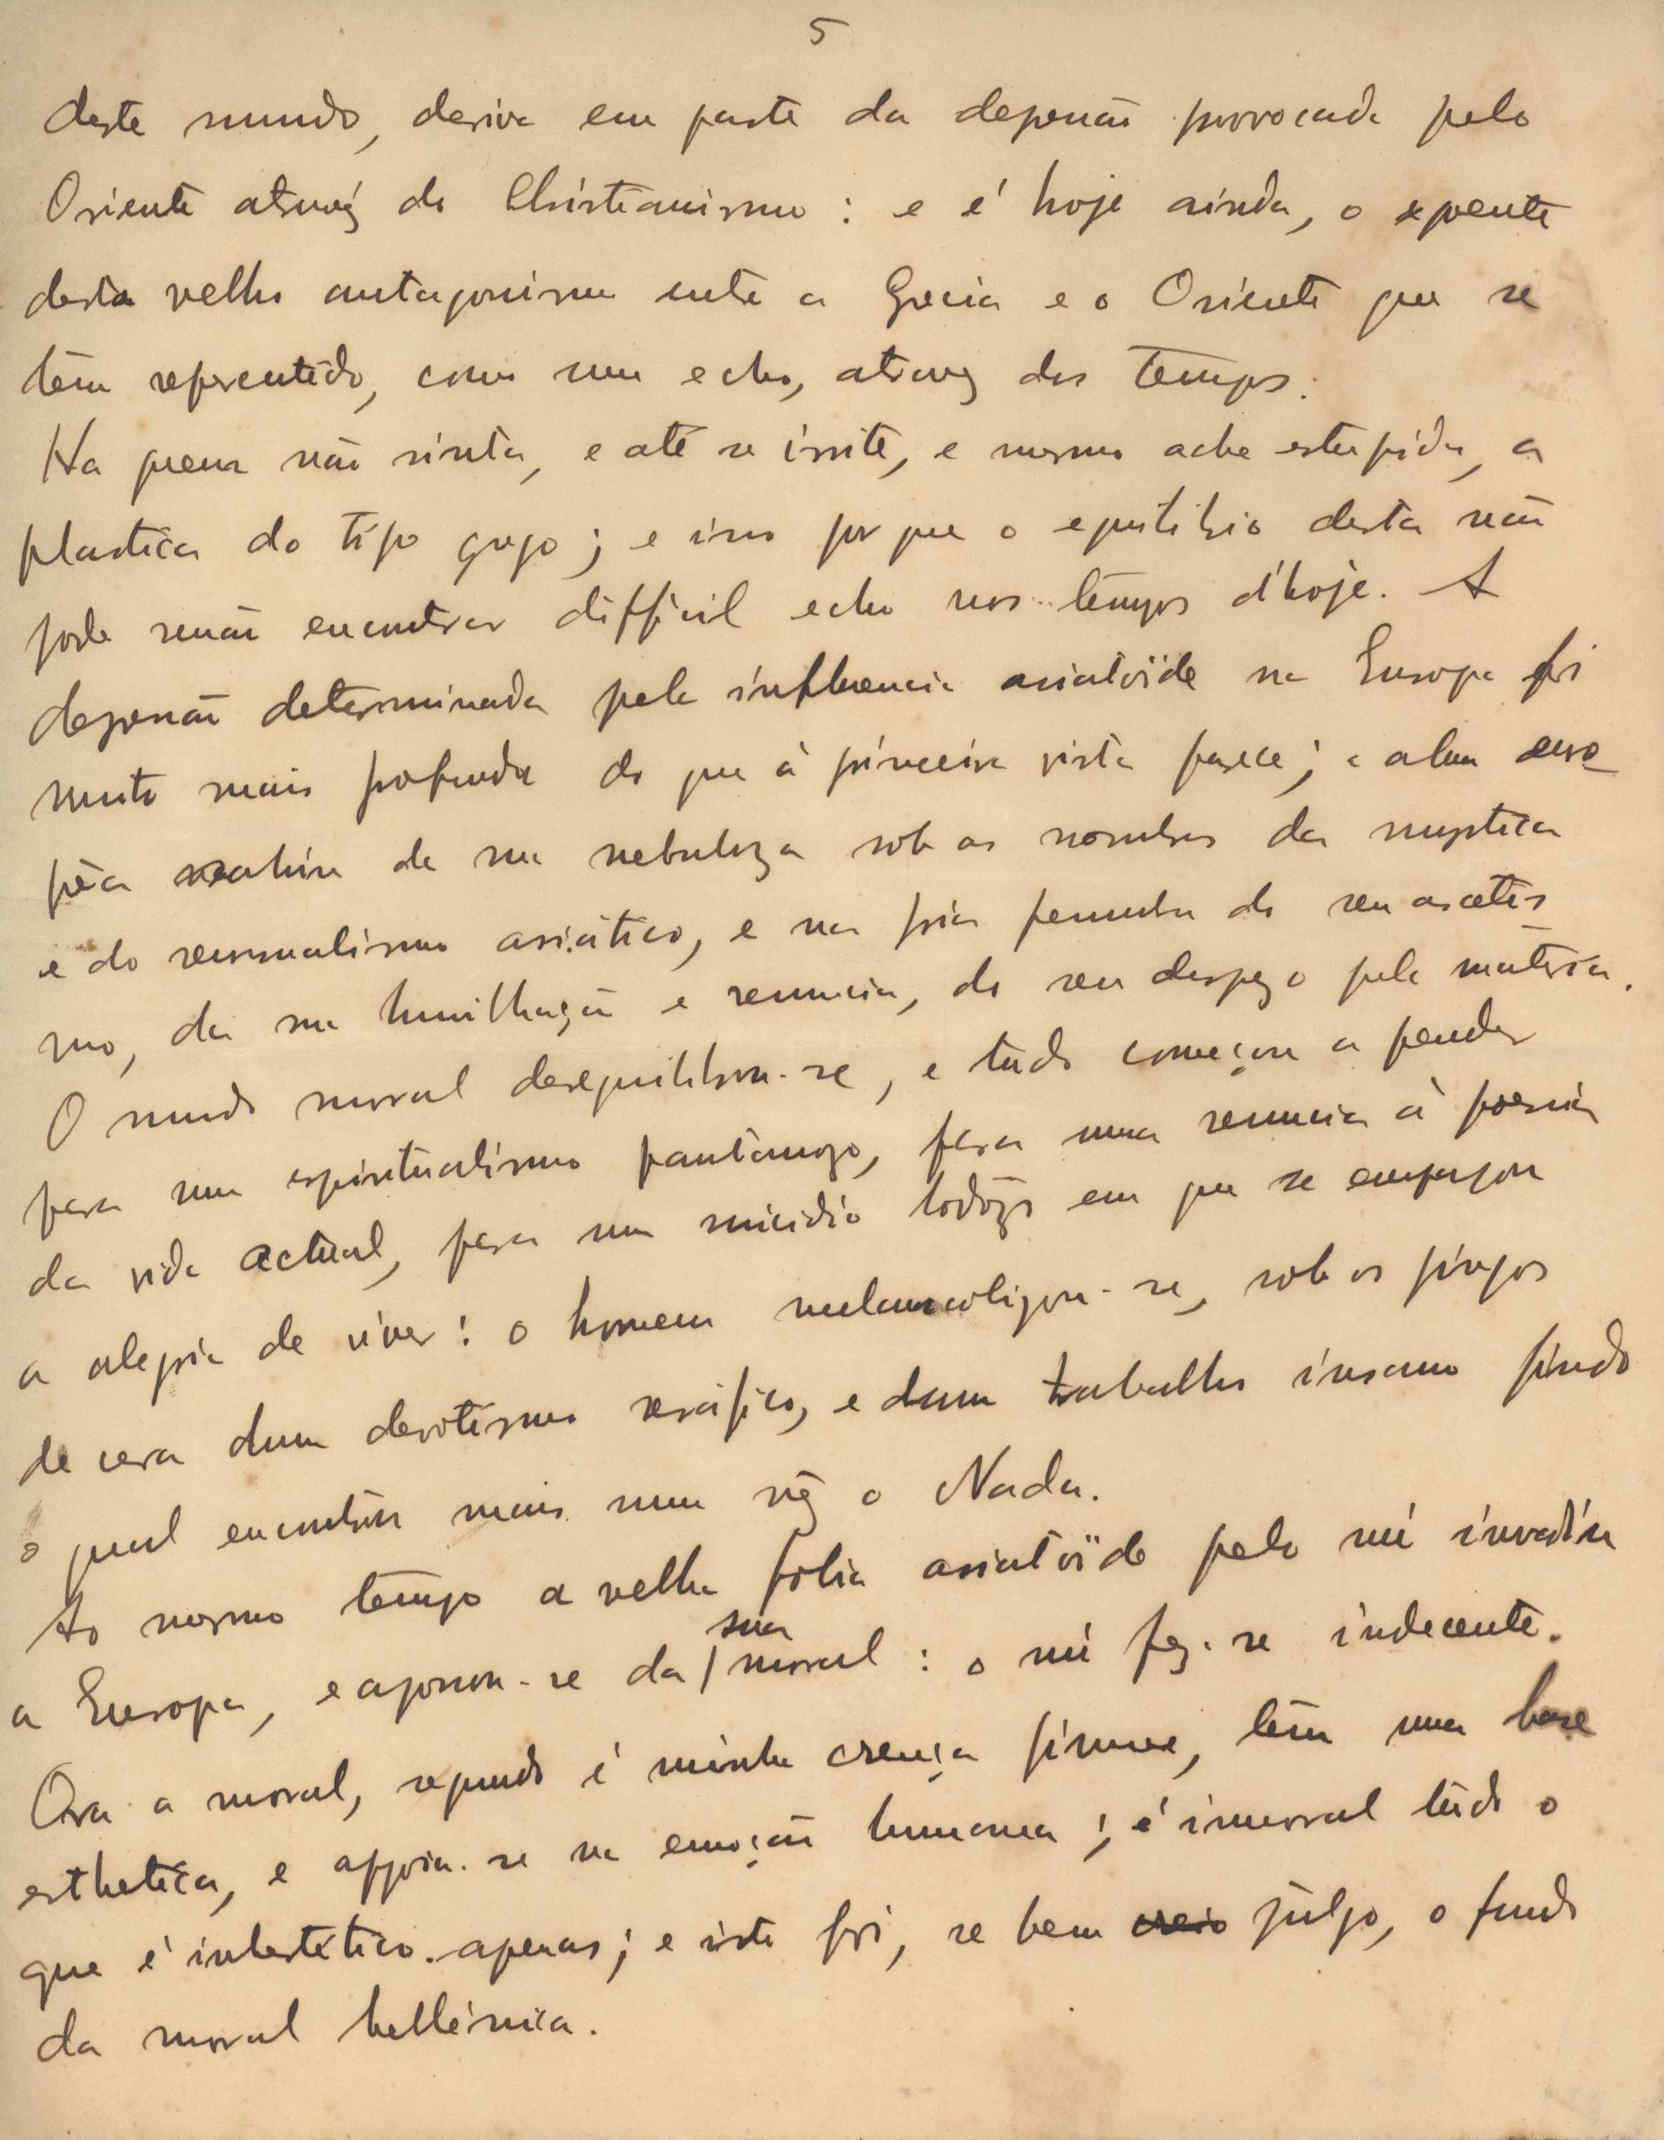 5
deste mundo, deriva em parte da depressão provocada pelo
Oriente atravez do Christianismo : e é hoje ainda, o expoente
desta velho antagonismo entre a Grecia e o Oriente que se
têm repercutido, como um echo, atravez dos tempos.
Ha quem não sinta, e até se irrite, e mesmo ache estupida, a
plastica do tipo grego ; e isso por que o equilibrio desta não
pode senão encontrar difficil echo nos tempos d'hoje. A
depressão determinada pela influencia asiatoïde na Europa foi
muito mais profunda do que á primeira vista parece ; a alma euro
pêa de sua nebuloza sob as sombras da mystica
e do sensualismo asiático, e na fria penumbra do seu ascetis
mo, da sua humilhação e renuncia, do seu despego pela matéria.
O mundo moral desequilibrou-se, e tudo começou a pender
para um espiritualismo pantanozo, para uma renuncia á poesia
da vida actual, para um suicidio lodôzo em que se empegou
a alegria de viver : o homem melancolizou-se, sob os pingos
de cera dum devotismo seráfico, e dum trabalho insano findo
o qual encontrou mais uma vêz o Nada.
Ao mesmo tempo a velha fobia asiatoïde pelo nú invadiu
a Europa, e apossou-se da sua moral : o nú fez-se indecente.
Ora a moral, segundo é minha crença firme, têm uma base
esthetica, e appoia-se na emoção humana ; é immoral tudo o
que é inhestético apenas ; e isto foi, se bem creio julgo, o fundo
da moral hellénica.